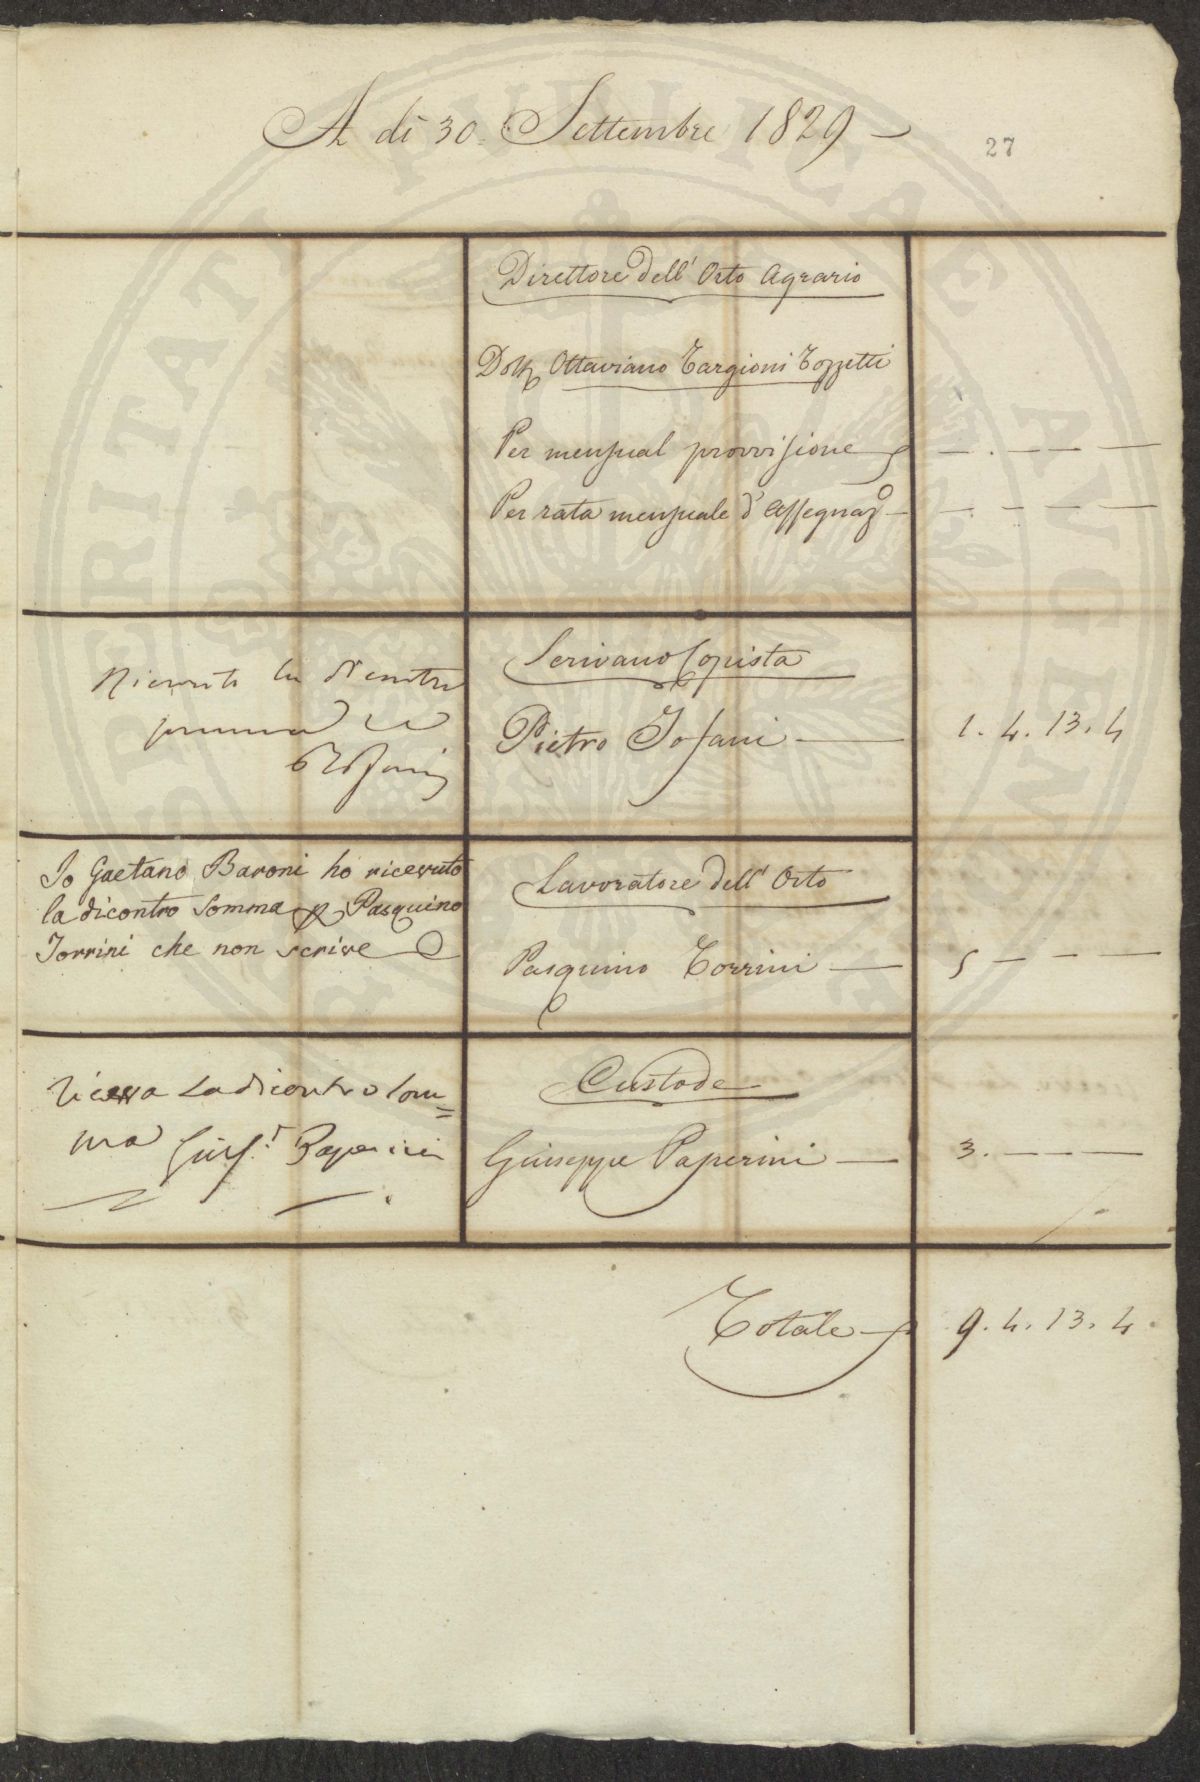 A dì 30. Settembre 1829
27
Direttore dell' Orto Agrario
Dott. Ottaviano Targioni Tozzetti
Per mensual provvisione — . — — —
Per rata mensuale d'Assegnaz.e — — . — — — —
Scrivano Copista
Ricevuto la di contro
somma
Pietro Tofani — 1. 4. 13. 4
Lavoratore dell' Orto
Io Gaetano Baroni ho ricevuto
la dicontro Somma p Pasquino
Torrini che non scrive
Pasquino Torrini — 5 — — —
Custode
ladicontro som=
ma Gius.e Paperini
Giuseppe Paperini — 3. — — —
Totale — 9. 4. 13. 4.
PVBLICAE AVGENDAE PROSPERITATI